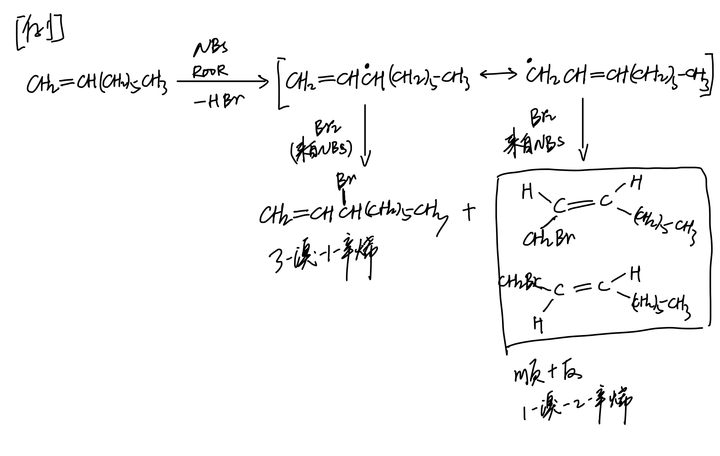 [例1]
NBS
ROOR
CH₂=CH(CH₂)₅CH₃ -HBr [CH₂=CHĊH(CH₂)₅-CH₃ ↔ ĊH₂CH=CH(CH₂)₅-CH₃]
Br₂
(来自NBS)
Br₂
来自NBS
Br
CH₂=CHCH(CH₂)₅CH₃ +
3-溴-1-辛烯
H H
C=C
CH₂Br (CH₂)₅-CH₃
CH₂Br H
C=C
H (CH₂)₅-CH₃
顺+反
1-溴-2-辛烯